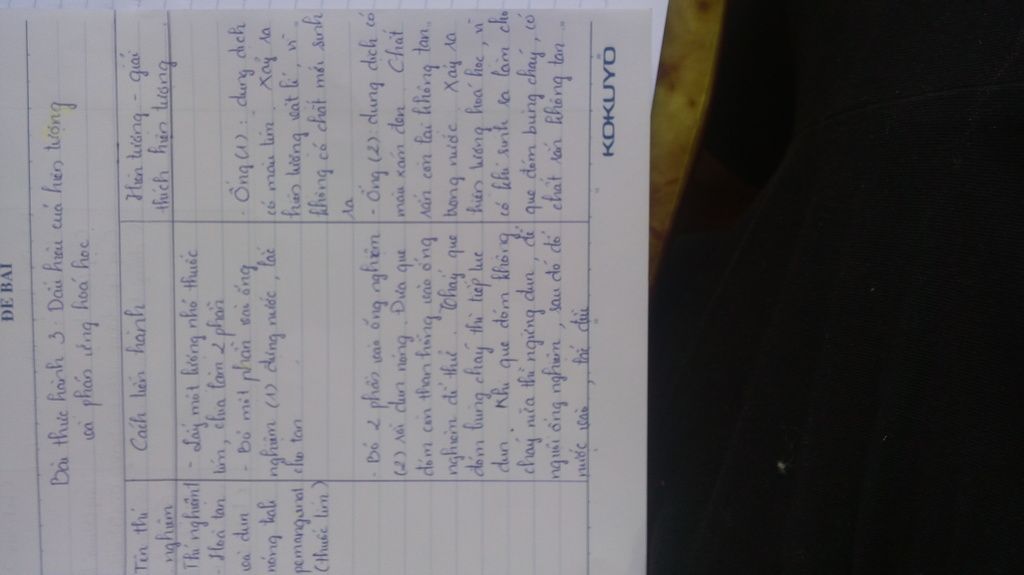 ĐỀ BÀI
Bài thực hành 3: Dấu hiệu của hiện tượng
và phản ứng hoá học
Tên thí
nghiệm
Thí nghiệm 1
- Hoà tan
và đun
nóng kali
pemanganat
(thuốc tím)
Cách tiến hành
- Lấy một lượng nhỏ thuốc
tím, chia làm 2 phần
- Bỏ một phần vào ống
nghiệm (1) đựng nước, lắc
cho tan
- Bỏ 2 phần vào ống nghiệm
(2) rồi đun nóng. Đưa que
đóm còn than hồng vào ống
nghiệm để thử. Thấy que
đóm bùng cháy thì tiếp tục
đun. Khi que đóm không
cháy nữa thì ngừng đun, để
nguội ống nghiệm, sau đó đổ
nước vào, lắc đều
Hiện tượng - giải
thích hiện tượng
- Ống (1): dung dịch
có màu tím. Xảy ra
hiện tượng vật lí, vì
không có chất mới sinh
ra
- Ống (2): dung dịch có
màu xám đen. Chất
rắn còn lại không tan
trong nước. Xảy ra
hiện tượng hoá học, vì
có khí sinh ra làm cho
que đóm bùng cháy, có
chất rắn không tan..
KOKUYO